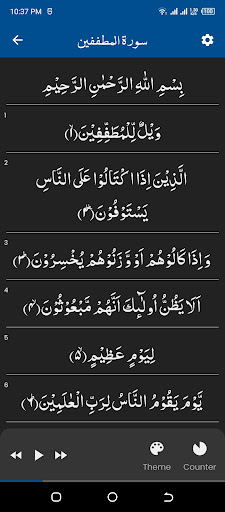 10:37 PM
سورة المطففين
بِسْمِ اللهِ الرَّحْمٰنِ الرَّحِيْمِ
1
وَيْلٌ لِّلْمُطَفِّفِيْنَ ﴿۱﴾
2
الَّذِيْنَ اِذَا اكْتَالُوْا عَلَى النَّاسِ
يَسْتَوْفُوْنَ ﴿۲﴾
3
وَاِذَا كَالُوْهُمْ اَوْ وَّزَنُوْهُمْ يُخْسِرُوْنَ ﴿۳﴾
4
اَلَا يَظُنُّ اُولٰٓئِكَ اَنَّهُمْ مَّبْعُوْثُوْنَ ﴿۴﴾
5
لِيَوْمٍ عَظِيْمٍ ﴿۵﴾
6
يَّوْمَ يَقُوْمُ النَّاسُ لِرَبِّ الْعٰلَمِيْنَ ﴿۶﴾
Theme
Counter